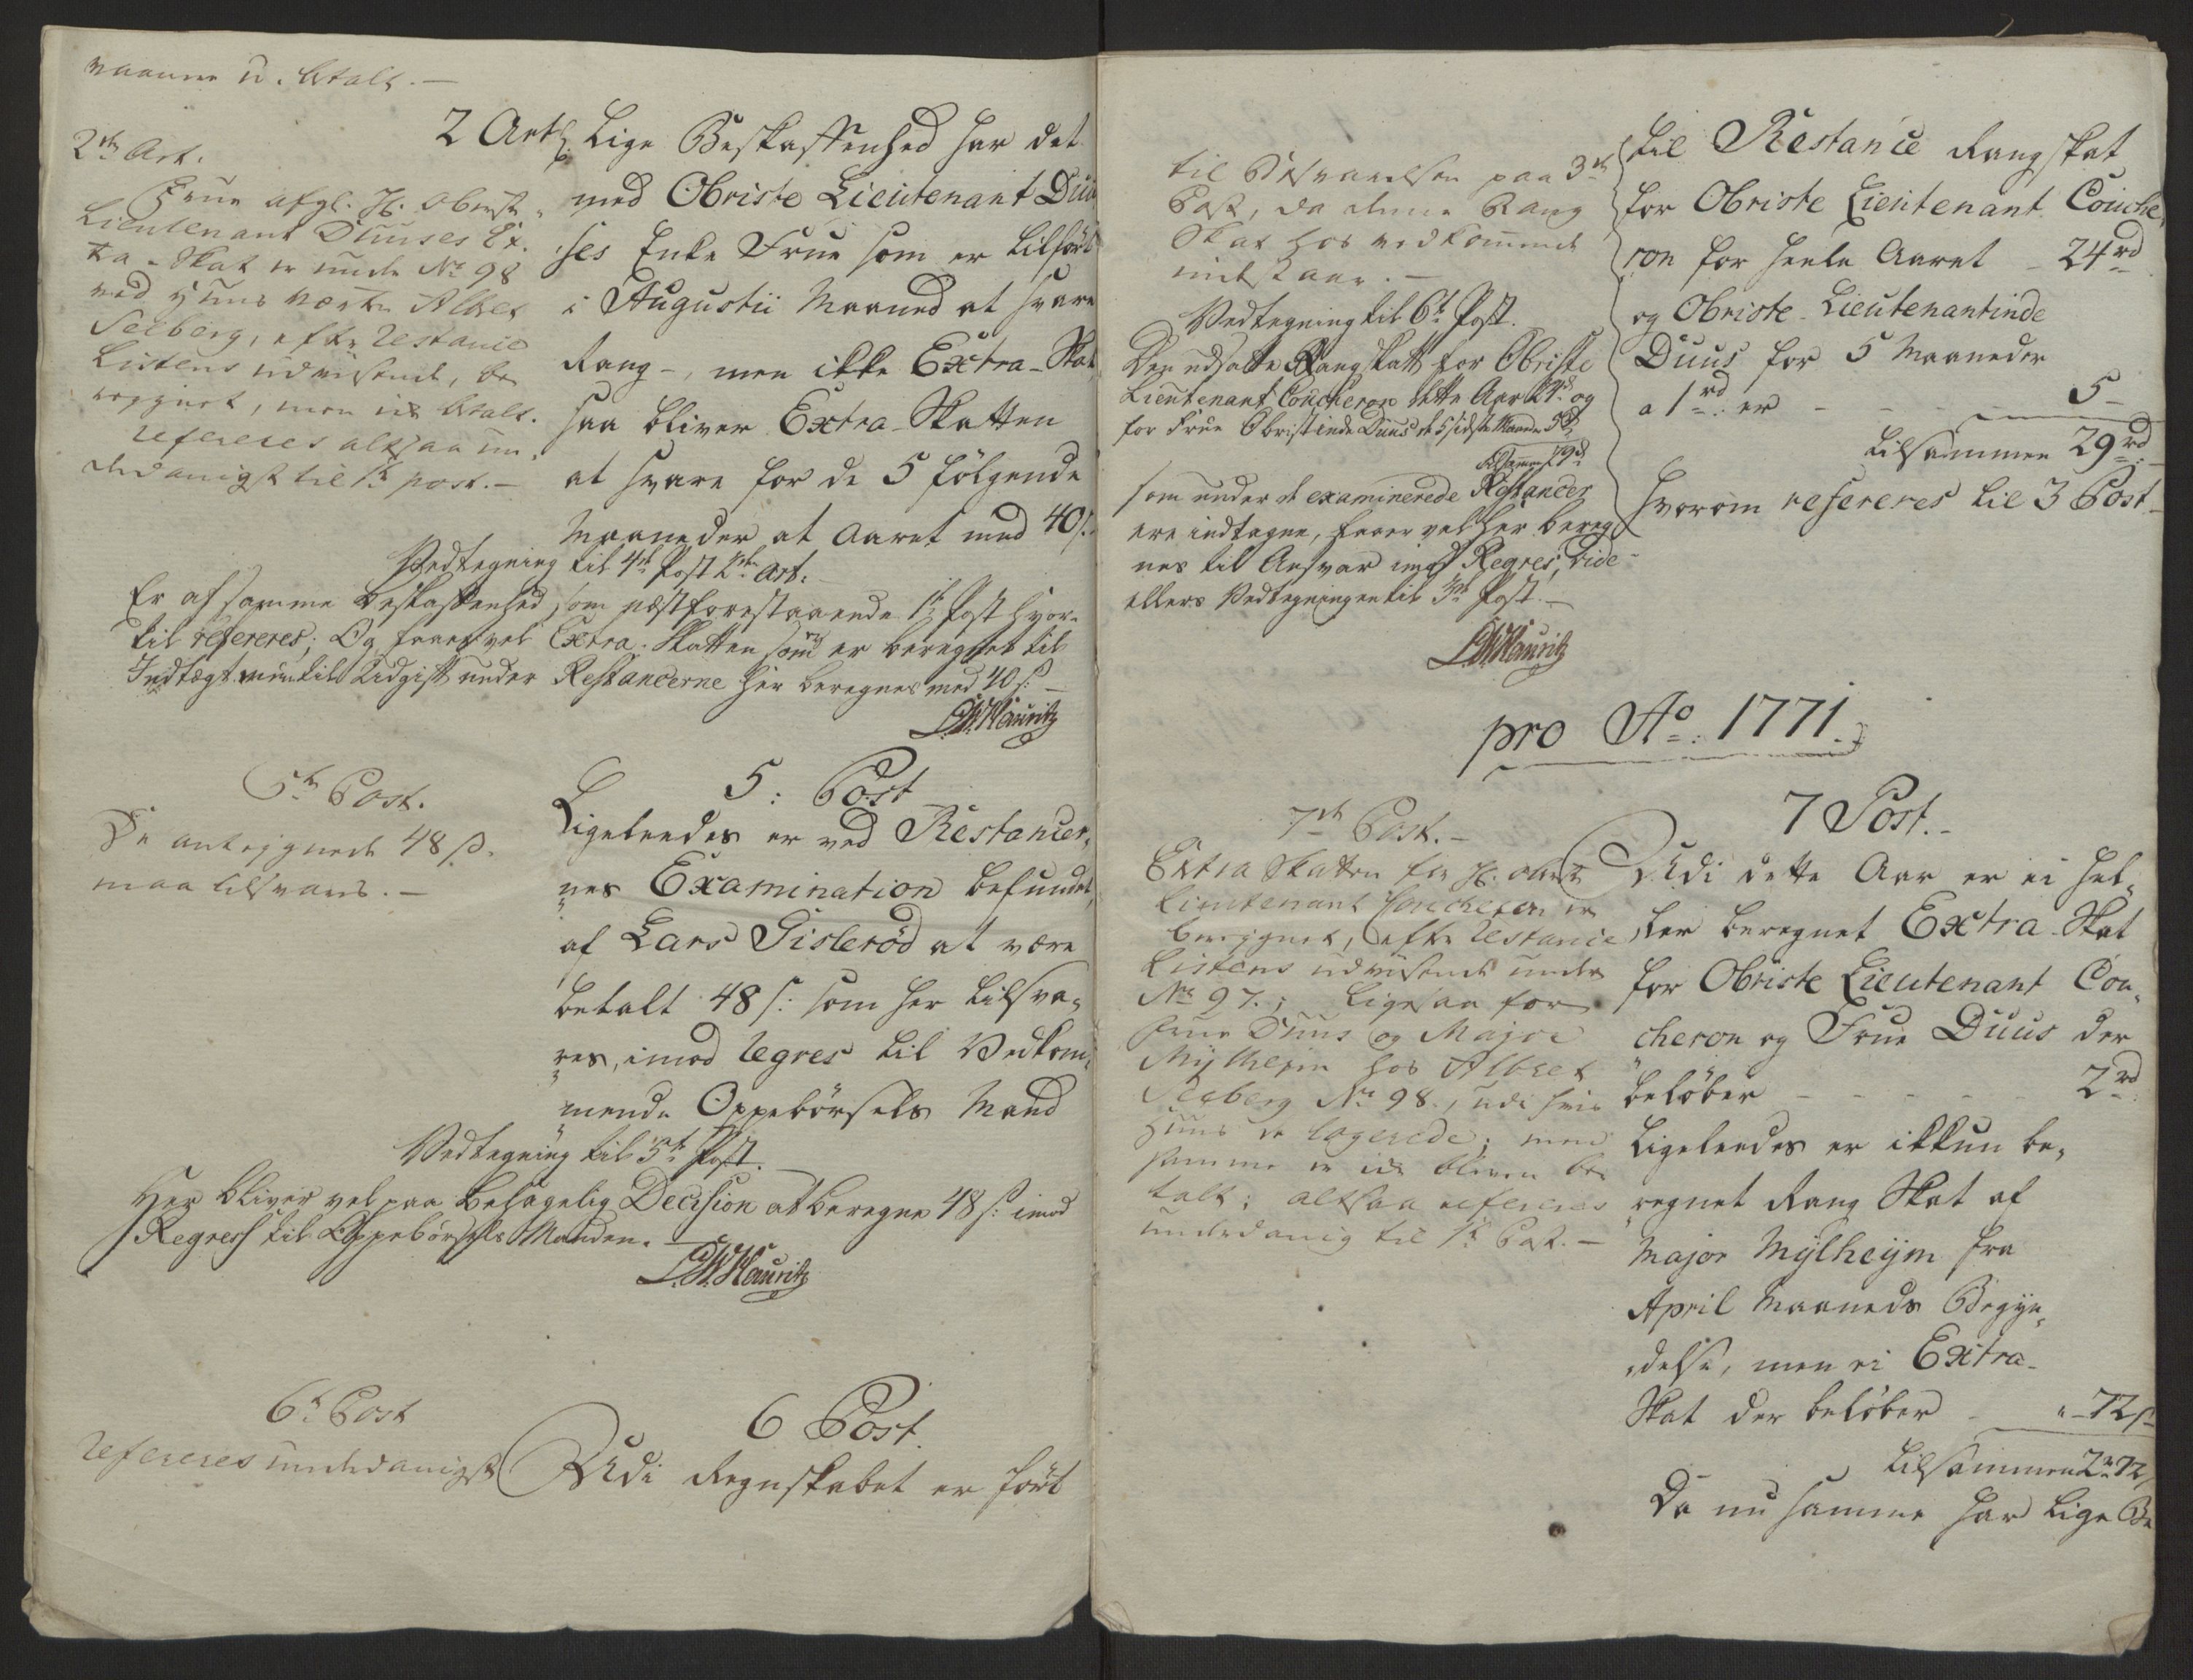 naanne u. btalt. —
2de Art.
Frue afgl. H. Oberst
Lieutenant Duuses Ex-
tra-Skat er under No 98
ved Huus vært Albret
Seeberg, efter Restance
Listens udvisende, be
regnet, men ei btalt.
refereres altsaa un-
derdanigst til 1te post. —
2 Art: Lige Beskaffenhed har det
med Obriste Lieutenant Duu
ses Enke Frue som er tilført
i Augustii Maaned at svare
Rang-, men ikke Extra-Skat
saa bliver Extra-Skatten
at svare for de 5 følgende
Maaneder at Aaret med 40 s.
Vedtegning til 4de Post 2de Art:
Er af samme Beskaffenhed som næstforestaaende 1te Post hvor-
til refereres; Og faaer vel Extra-Skatten som ey er beregnet til
Indtægt men til Udgift under Restancerne her beregnes med 40 s. —
L.W. Mauritz
5te Post.
De antegnede 48 s.
maa tilsvares. —
5: Post
Ligeleedes er ved Restancer-
nes Examination befundet,
af Lars Gisleröd at være
betalt 48 s: som her tilsva-
res, imod Regres til Vedkom-
mende Oppebörsels Mand
Vedtegning til 5te Post.
Her bliver vel paa behagelig Decision at beregne 48 s: imod
Regress til Oppebörsels Manden.
L.W. Mauritz
6te Post
refereres underdanigst
6 Post.
Udi Regnskabet er ført
til Besvarelsen paa 3de
Post, da denne Rang
Skat hos vedkommende
udestaar. —
Vedtegning til 6te Post.
Den udsatte Rangskatt for Obriste
Lieutenant Coucheron dette Aar 24 rd og
for Frue Obristinde Duus de 5 sidste Maaneder 5 rd
tilsammen 29 rd
som under de examinerede Restancer
ere indtagne, faaer vel her bereg
nes til Ansvar imod Regres, vide
ellers Vedtegningen til 3de Post. —
L.W. Mauritz
til Restance Rangskat
for Obriste Lieutenant Couche-
ron for heele Aaret – 24 rd
og Obriste-Lieutenantinde
Duus for 5 Maaneder
a 1 rd: er - - - 5 –
tilsammen 29 rd
hvorom refereres til 3 Post –
pro Ao: 1771.
7de Post. –
Extra Skatten for H. Oberst
Lieutenant Coucheron er
beregnet, efter Restance
Listens udvisende under
No 97.; ligesaa for
Frue Duus og Major
Mylheim hos Albret
Seeberg No 98., udi hvis
Huus de logerede; men
samme er ei bleven be
talt; altsaa refereres
underdanig til 1te Post. —
7 Post. –
Udi dette Aar er ei hel-
ler beregnet Extra-Skat
for Obriste Lieutenant Cou-
cheron og Frue Duus der
beløber - - - - 2 rd
Ligeleedes er ikkun be-
regnet Rang Skat af
Major Mylheÿm fra
April Maaneds Begyn-
delse, men ei Extra-
Skat der beløber - „ – 72 s
tilsammen 2 rd 72 s
Da nu samme har lige Be